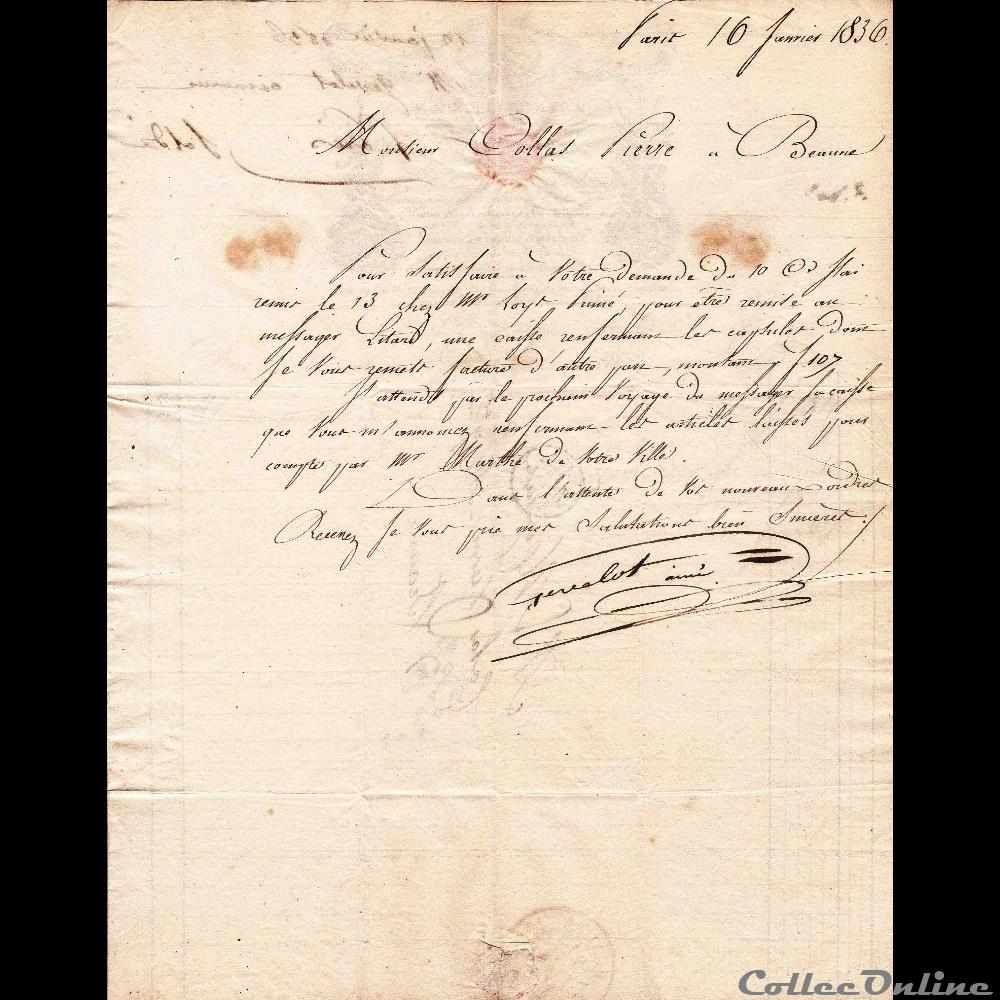 Paris 16 Janvier 1836
Monsieur Collas Pierre à Beaune
Pour Satisfaire à Votre Demande du 10 Ct J'ai
remis le 13 chez Mr Loyt pour être remise au
messager Litard, une caisse renfermant les capsules dont
Je Vous remets facture d'autre part, montant f 107
J'attends par le prochain Voyage du messager la caisse
que Vous m'annoncez renfermant les articles laissés pour
compte par Mr Marthe de Votre Ville.
Dans l'attente de Vos nouveaux ordres
Recevez Je Vous prie mes Salutations bien Sincères
Gevelot ainé
CollecOnline